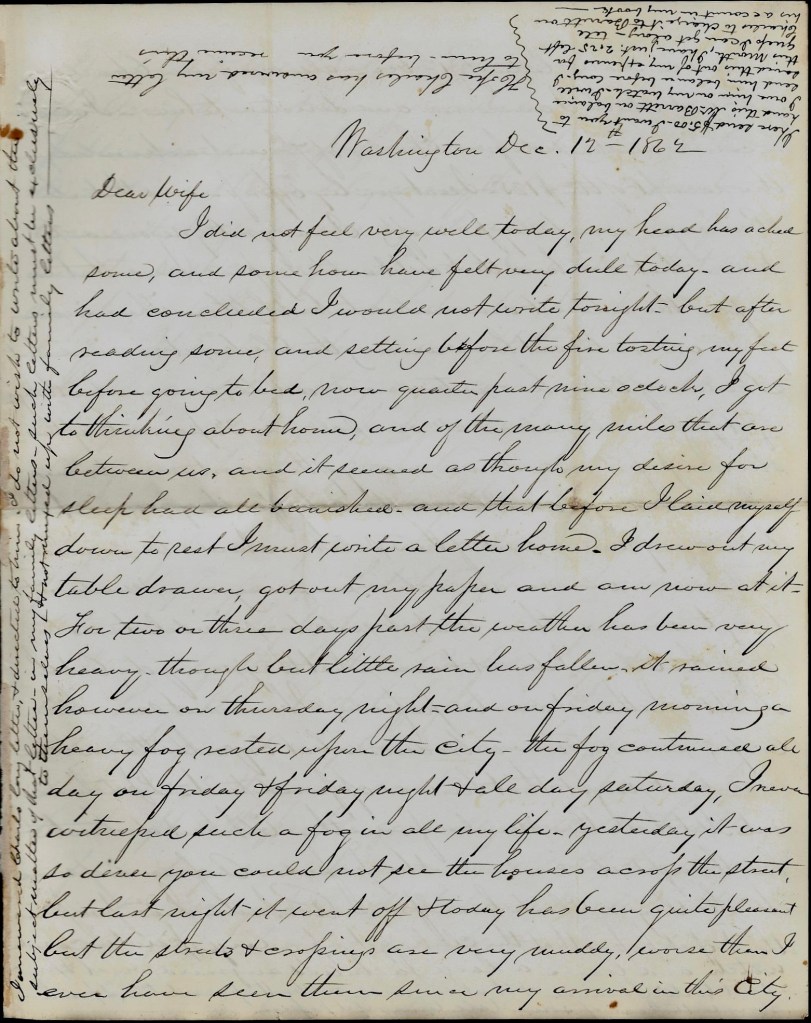 Here send $5.00 I want you to
hand this Mr Barrett on balance
I owe him on my watch I will
send him balance before long. I
send this out of my expenses for
this month, I have just 2.25 left
guess I can get along - tell
Charles to charge it to Barrett on
his account in my book -
Hope Charles has answered my letter
to him - before you receive this
Washington Dec. 14th - 1862
Dear Wife
I did not feel very well today, my head has ached
some, and some how have felt very dull today - and
had concluded I would not write tonight - but after
reading some, and setting before the fire tosting my feet
before going to bed, now quarter past nine oclock, I got
to thinking about home, and of the many miles that are
between us, and it seemed as though my desire for
sleep had all banished - and that before I laid myself
down to rest I must write a letter home - I drew out my
table drawer, got out my paper and am now at it -
For two or three days past the weather has been very
heavy - though but little rain has fallen - it rained
however on thursday night - and on friday morning a
heavy fog rested upon the City - the fog continued all
day on friday & friday night & all day saturday, I never
witnessed such a fog in all my life - yesterday it was
so dense you could not see the houses across the street,
but last night it went off & today has been quite pleasant
but the streets & crossings are very muddy, worse than I
ever have seen them since my arrival in this City.
I answered Charles long letter, & directed to him. I do not wish to write about the
subject matter of that letter - in my family letters - such letters must be exclusively
to themselves & not mixed up with family letters